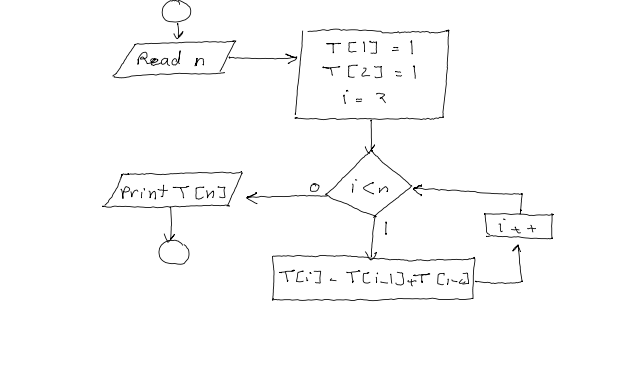 Read n
T[1] = 1
T[2] = 1
i = 3
i<n
0
1
Print T[n]
i++
T[i] = T[i-1]+T[i-2]